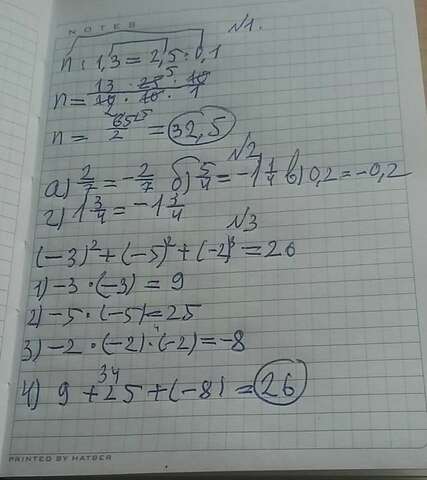 NOTES
№1.
n : 1,3 = 2,5 : 0,1
n = 13 · 25 · 10 / 10 · 10 · 1
n = 65 / 2 = 32,5
№2
а) 2/7 = -2/7 б) 5/4 = -1 1/4 в) 0,2 = -0,2
г) 1 3/4 = -1 3/4
№3
(-3)² + (-5)² + (-2)³ = 26
1) -3 · (-3) = 9
2) -5 · (-5) = 25
3) -2 · (-2) · (-2) = -8
34
4) 9 + 25 + (-8) = 26
PRINTED BY HATBER